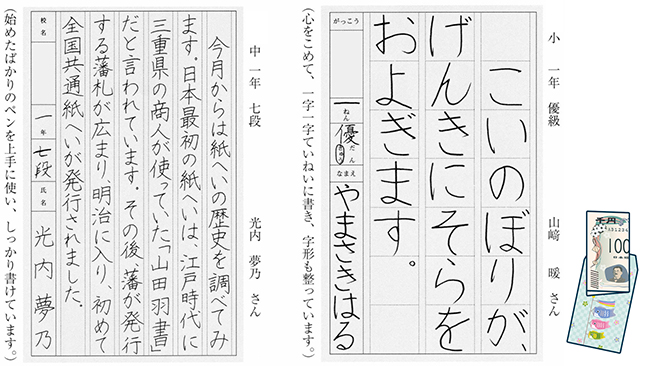 小一年 優級
山﨑 暖 さん
こいのぼりが、
げんきにそらを
およぎます。
がっこう
一ねん
優だん
きゅう
なまえ
やまさきはる
(心をこめて、一字一字ていねいに書き、字形も整っています。)
中一年 七段
光内 夢乃 さん
今月からは紙へいの歴史を調べてみ
ます。日本最初の紙へいは、江戸時代に
三重県の商人が使っていた「山田羽書」
だと言われています。その後、藩が発行
する藩札が広まり、明治に入り、初めて
全国共通紙へいが発行されました。
校名
一年
七段
氏名
光内夢乃
(始めたばかりのペンを上手に使い、しっかり書けています。)